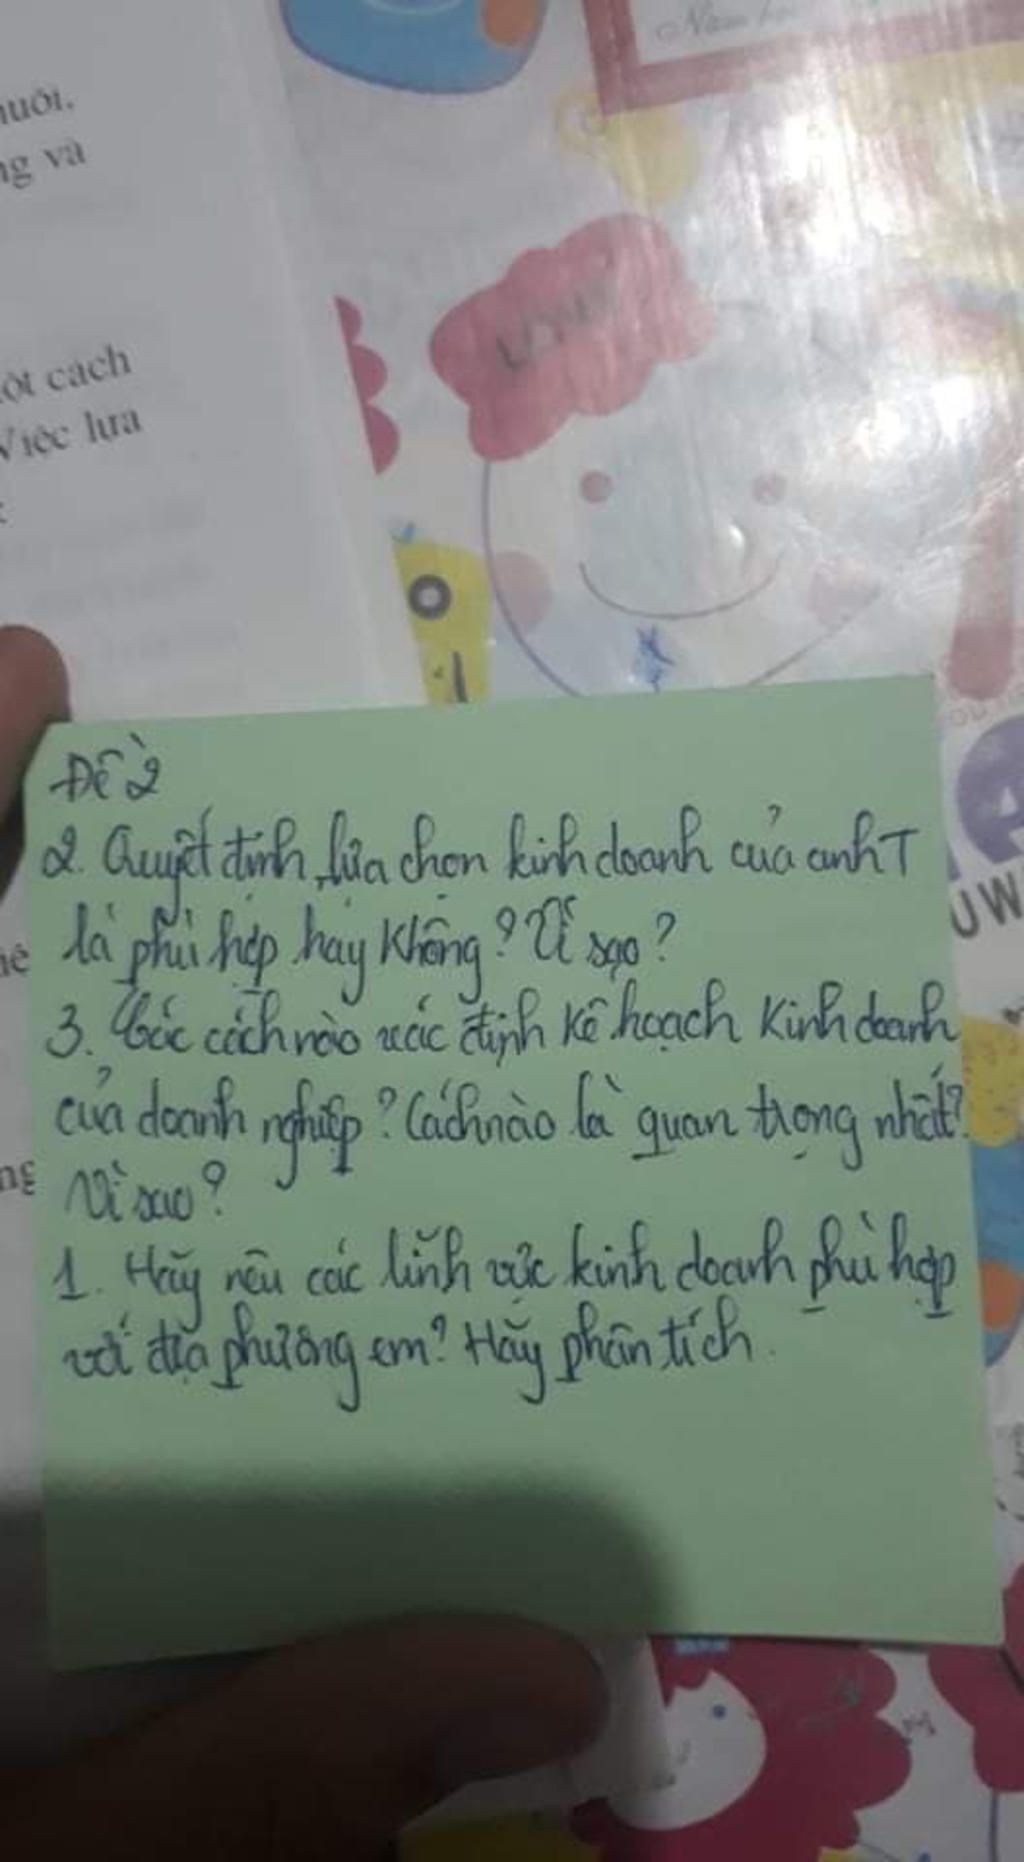 Năm
nuôi.
ng và
ột cách
Việc lựa
Đề 2
2. Quyết định lựa chọn kinh doanh của anh T
là phù hợp hay không? Vì sao?
3. Các cách nào xác định kế hoạch kinh doanh
của doanh nghiệp? Cách nào là quan trọng nhất?
Vì sao?
1. Hãy nêu các lĩnh vực kinh doanh phù hợp
với địa phương em? Hãy phân tích.